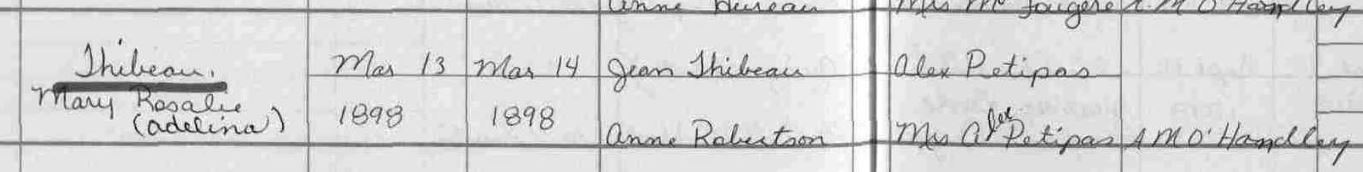 Anne Bureau Mrs Mc Fougere A. M O'Handley
Thibeau, Mar 13 Mar 14 Jean Thibeau Alex Petipas
Mary Rosalie 1898 1898
(adelina) Anne Robertson Mrs Alex Petipas A M O'Handley